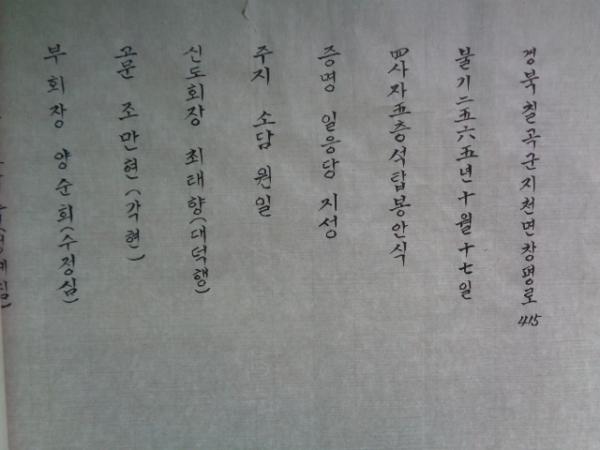 경북칠곡군지천면창평로415
불기二五六五년十月十七일
四사자五층석탑봉안식
증명 일응당 지성
주지 소담 원일
신도회장 최태향(대덕행)
고문 조만현(각현)
부회장 양순희(수정심)